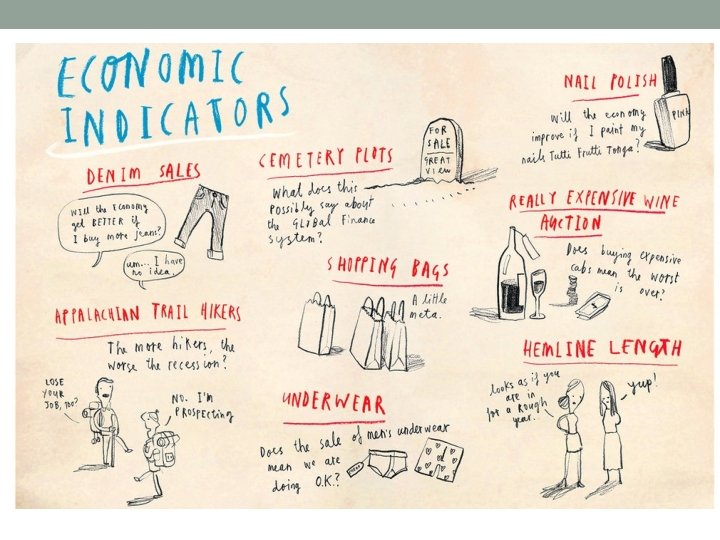 ECONOMIC
INDICATORS
DENIM SALES
WILL the ECONOMY
get BETTER if
I buy more jeans?
um... I have
no idea.
CEMETERY PLOTS
What does this
possibly say about
the GLOBAL Finance
System?
FOR
SALE
GREAT
VIEW
NAIL POLISH
Will the economy
improve if I paint my
nails Tutti Frutti Tonga?
PINK
REALLY EXPENSIVE WINE
AUCTION
Does buying expensive
cabs mean the worst
is over?
SHOPPING BAGS
A little
meta.
APPALACHIAN TRAIL HIKERS
The more hikers, the
worse the recession?
LOSE
YOUR
JOB, TOO?
NO. I'm
PROSPECTING
UNDERWEAR
Does the sale of men's underwear
mean we are
doing O.K.?
HEMLINE LENGTH
looks as if you
are in
for a ROUGH
year.
yup!